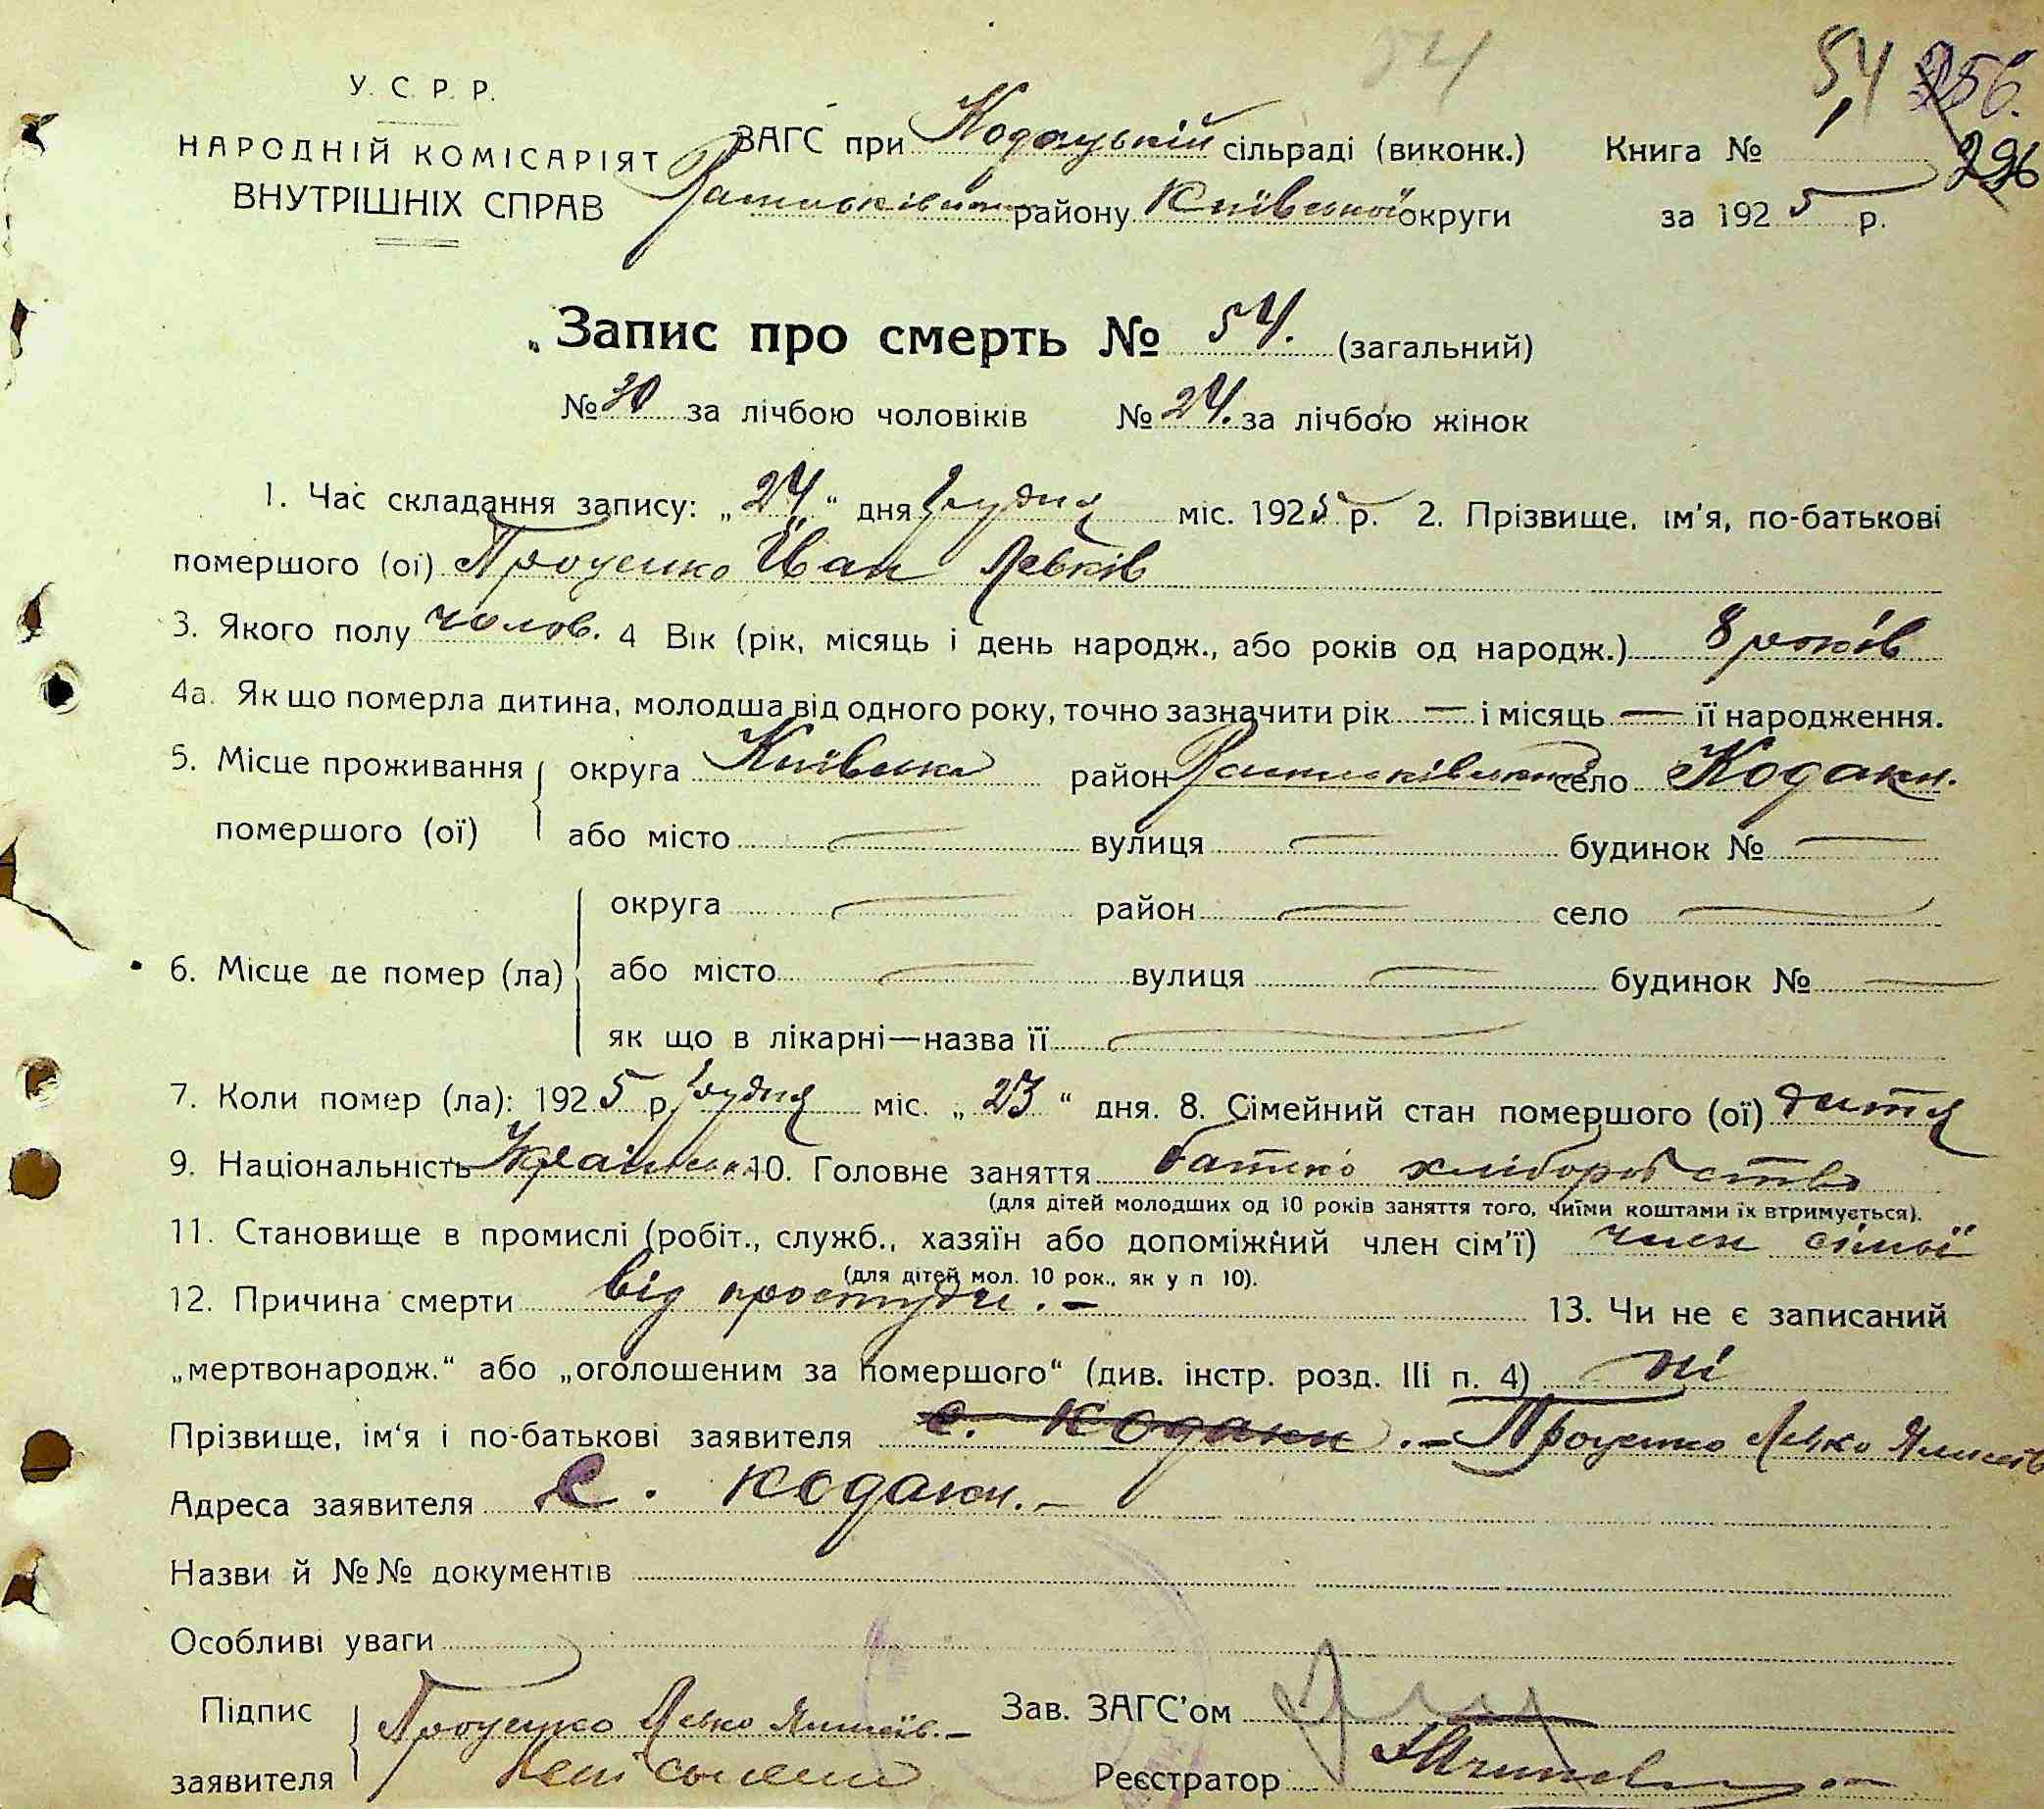 54
54 256.
У. С. Р. Р.
НАРОДНІЙ КОМІСАРІЯТ
ВНУТРІШНІХ СПРАВ
ЗАГС при Кодацькій сільраді (виконк.) Книга № 296
району Київської округи за 1925 р.
Запис про смерть № 54. (загальний)
№ 30 за лічбою чоловіків № 24. за лічбою жінок
1. Час складання запису: „24" дня грудня міс. 1925 р. 2. Прізвище, ім'я, по-батькові
помершого (ої) Проценко Іван Левків
3. Якого полу чолов. 4 Вік (рік, місяць і день народж., або років од народж.) 8 років
4а. Як що померла дитина, молодша від одного року, точно зазначити рік — і місяць — її народження.
5. Місце проживання округа Київська район село Кодаки.
помершого (ої) або місто — вулиця — будинок № —
округа — район — село —
6. Місце де помер (ла) або місто — вулиця — будинок № —
як що в лікарні—назва її —
7. Коли помер (ла): 1925 р. грудня міс. „23" дня. 8. Сімейний стан помершого (ої) дитя
9. Національність 10. Головне заняття батько хліборобство
(для дітей молодших од 10 років заняття того, чиїми коштами їх втримується).
11. Становище в промислі (робіт., служб., хазяїн або допоміжний член сім'ї) член сімьї
(для дітей мол. 10 рок., як у п 10).
12. Причина смерти від простуди. — 13. Чи не є записаний
„мертвонародж." або „оголошеним за помершого" (див. інстр. розд. III п. 4) ні
Прізвище, ім'я і по-батькові заявителя с. Кодаки .— Проценко Левко
Адреса заявителя с. Кодаки.—
Назви й №№ документів
Особливі уваги
Підпис Проценко Левко Зав. ЗАГС'ом
заявителя Реєстратор